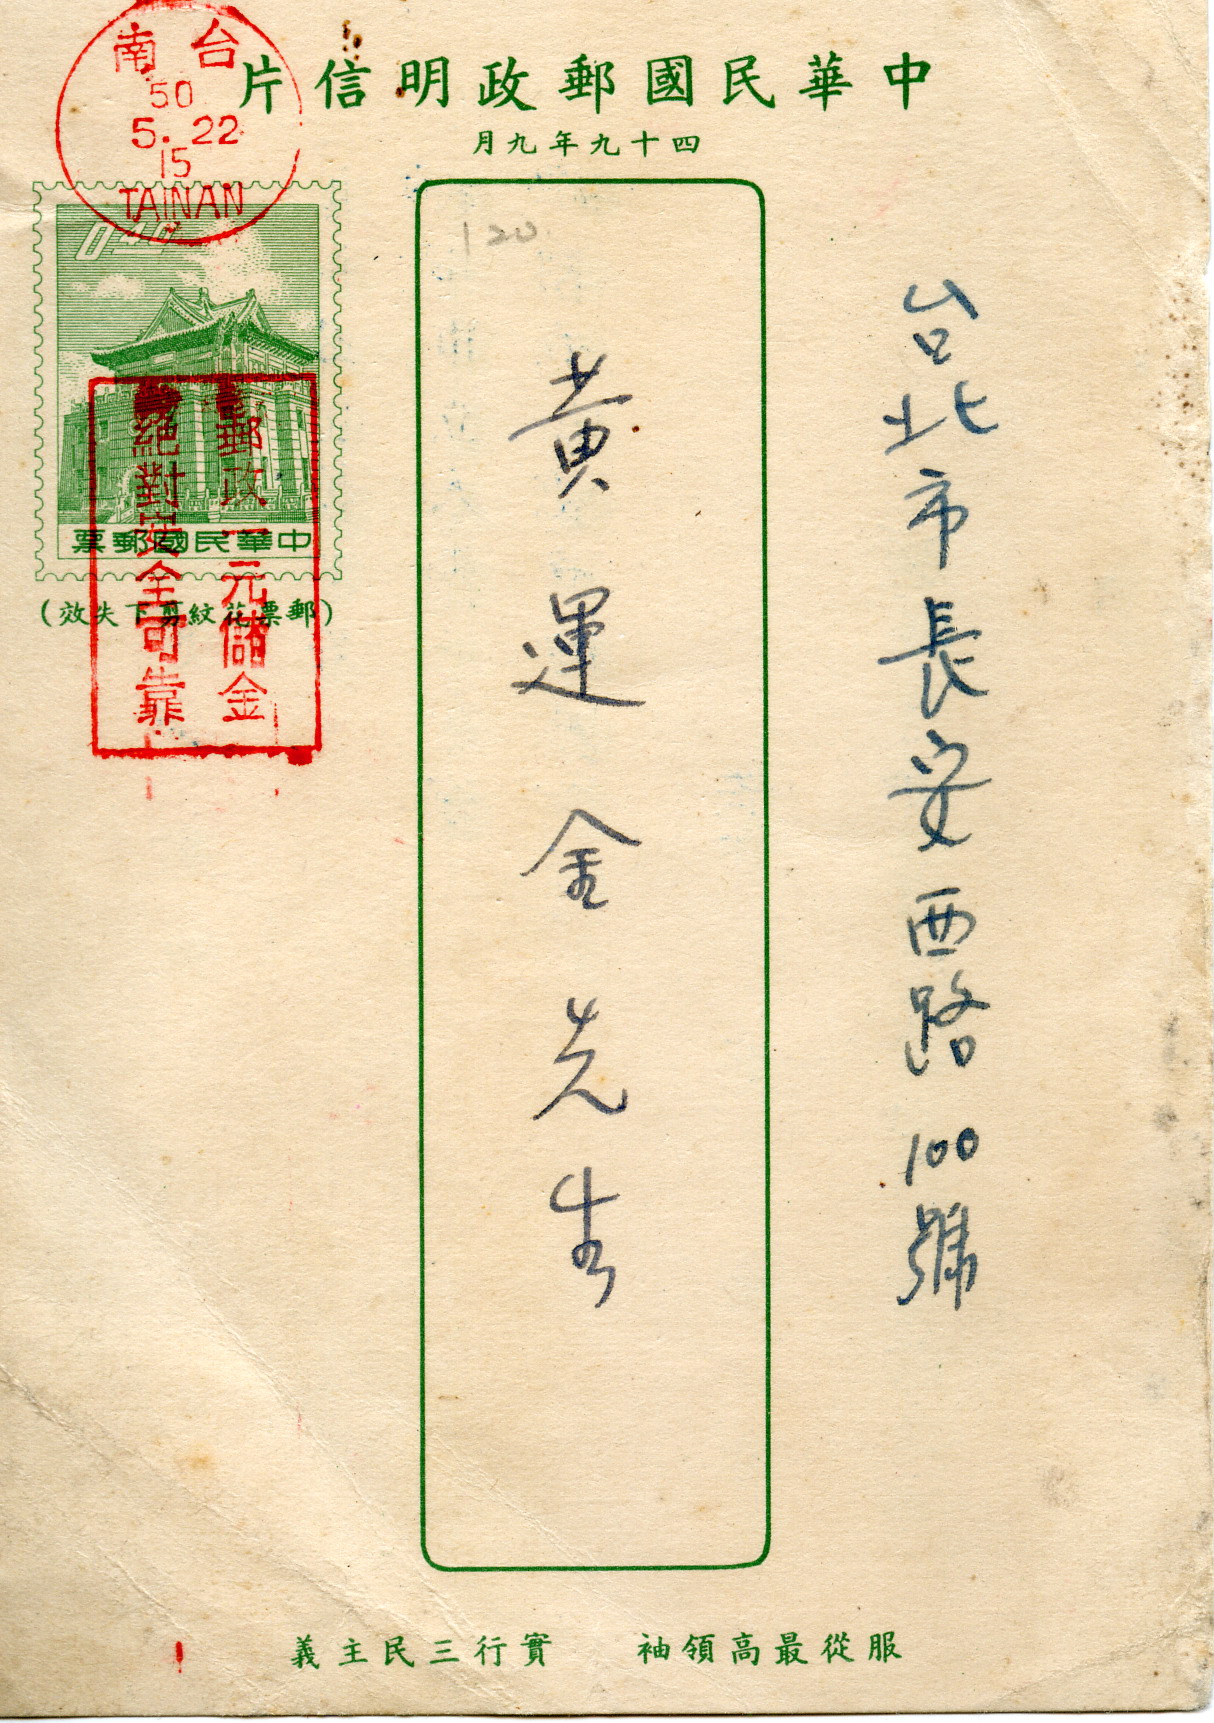 中華民國郵政明信片
四十九年九月
台南
50
5.22
15
TAINAN
中華民國郵票
(郵票花紋剪下失效)
郵政一元儲金
絕對安全可靠
120
台北市長安西路100號
黃運金先生
服從最高領袖 實行三民主義